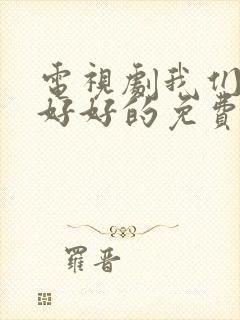 電視劇我们
好好的免費
羅晋